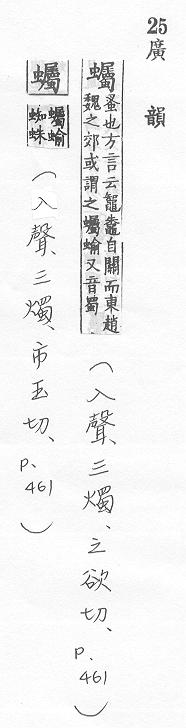 25 廣韻
蠾 蚤也方言云鼅鼄自關而東趙
魏之郊或謂之蠾蝓又音蜀
(入聲三燭、之欲切、p.461)
蠾 蠾蝓
蜘蛛
(入聲三燭、市玉切、p.461)